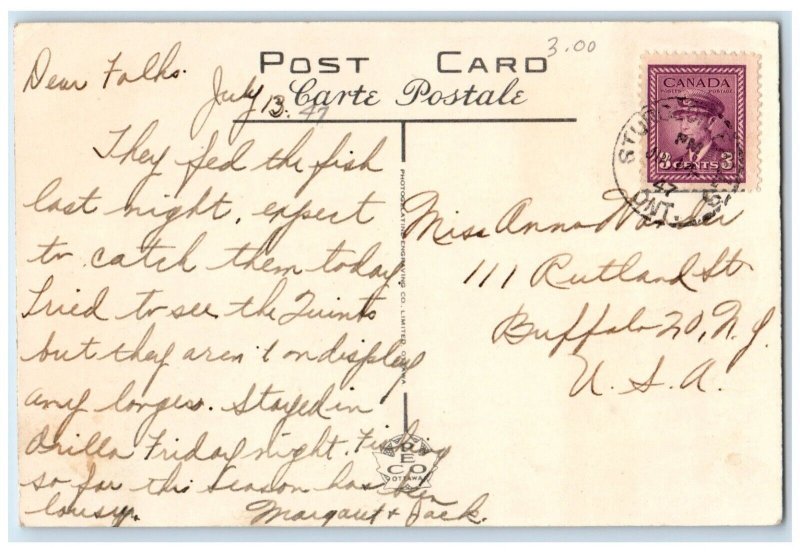 3.00
POST CARD
Carte Postale
CANADA
POSTES POSTAGE
3 CENTS 3
PM
47
ONT.
Dear Folks.
July 13. 47
They fed the fish
last night, expect
to catch them today
Tried to see the Quints
but they aren't on display
any longer. Stayed in
Orillia Friday night. Fishing
so far this season has been
lousy.
Margaret & Jack.
PHOTOGELATINE ENGRAVING CO. LIMITED, OTTAWA
PECO
OTTAWA
Miss Anna
111 Rutland St
Buffalo 20, N.Y.
U.S.A.